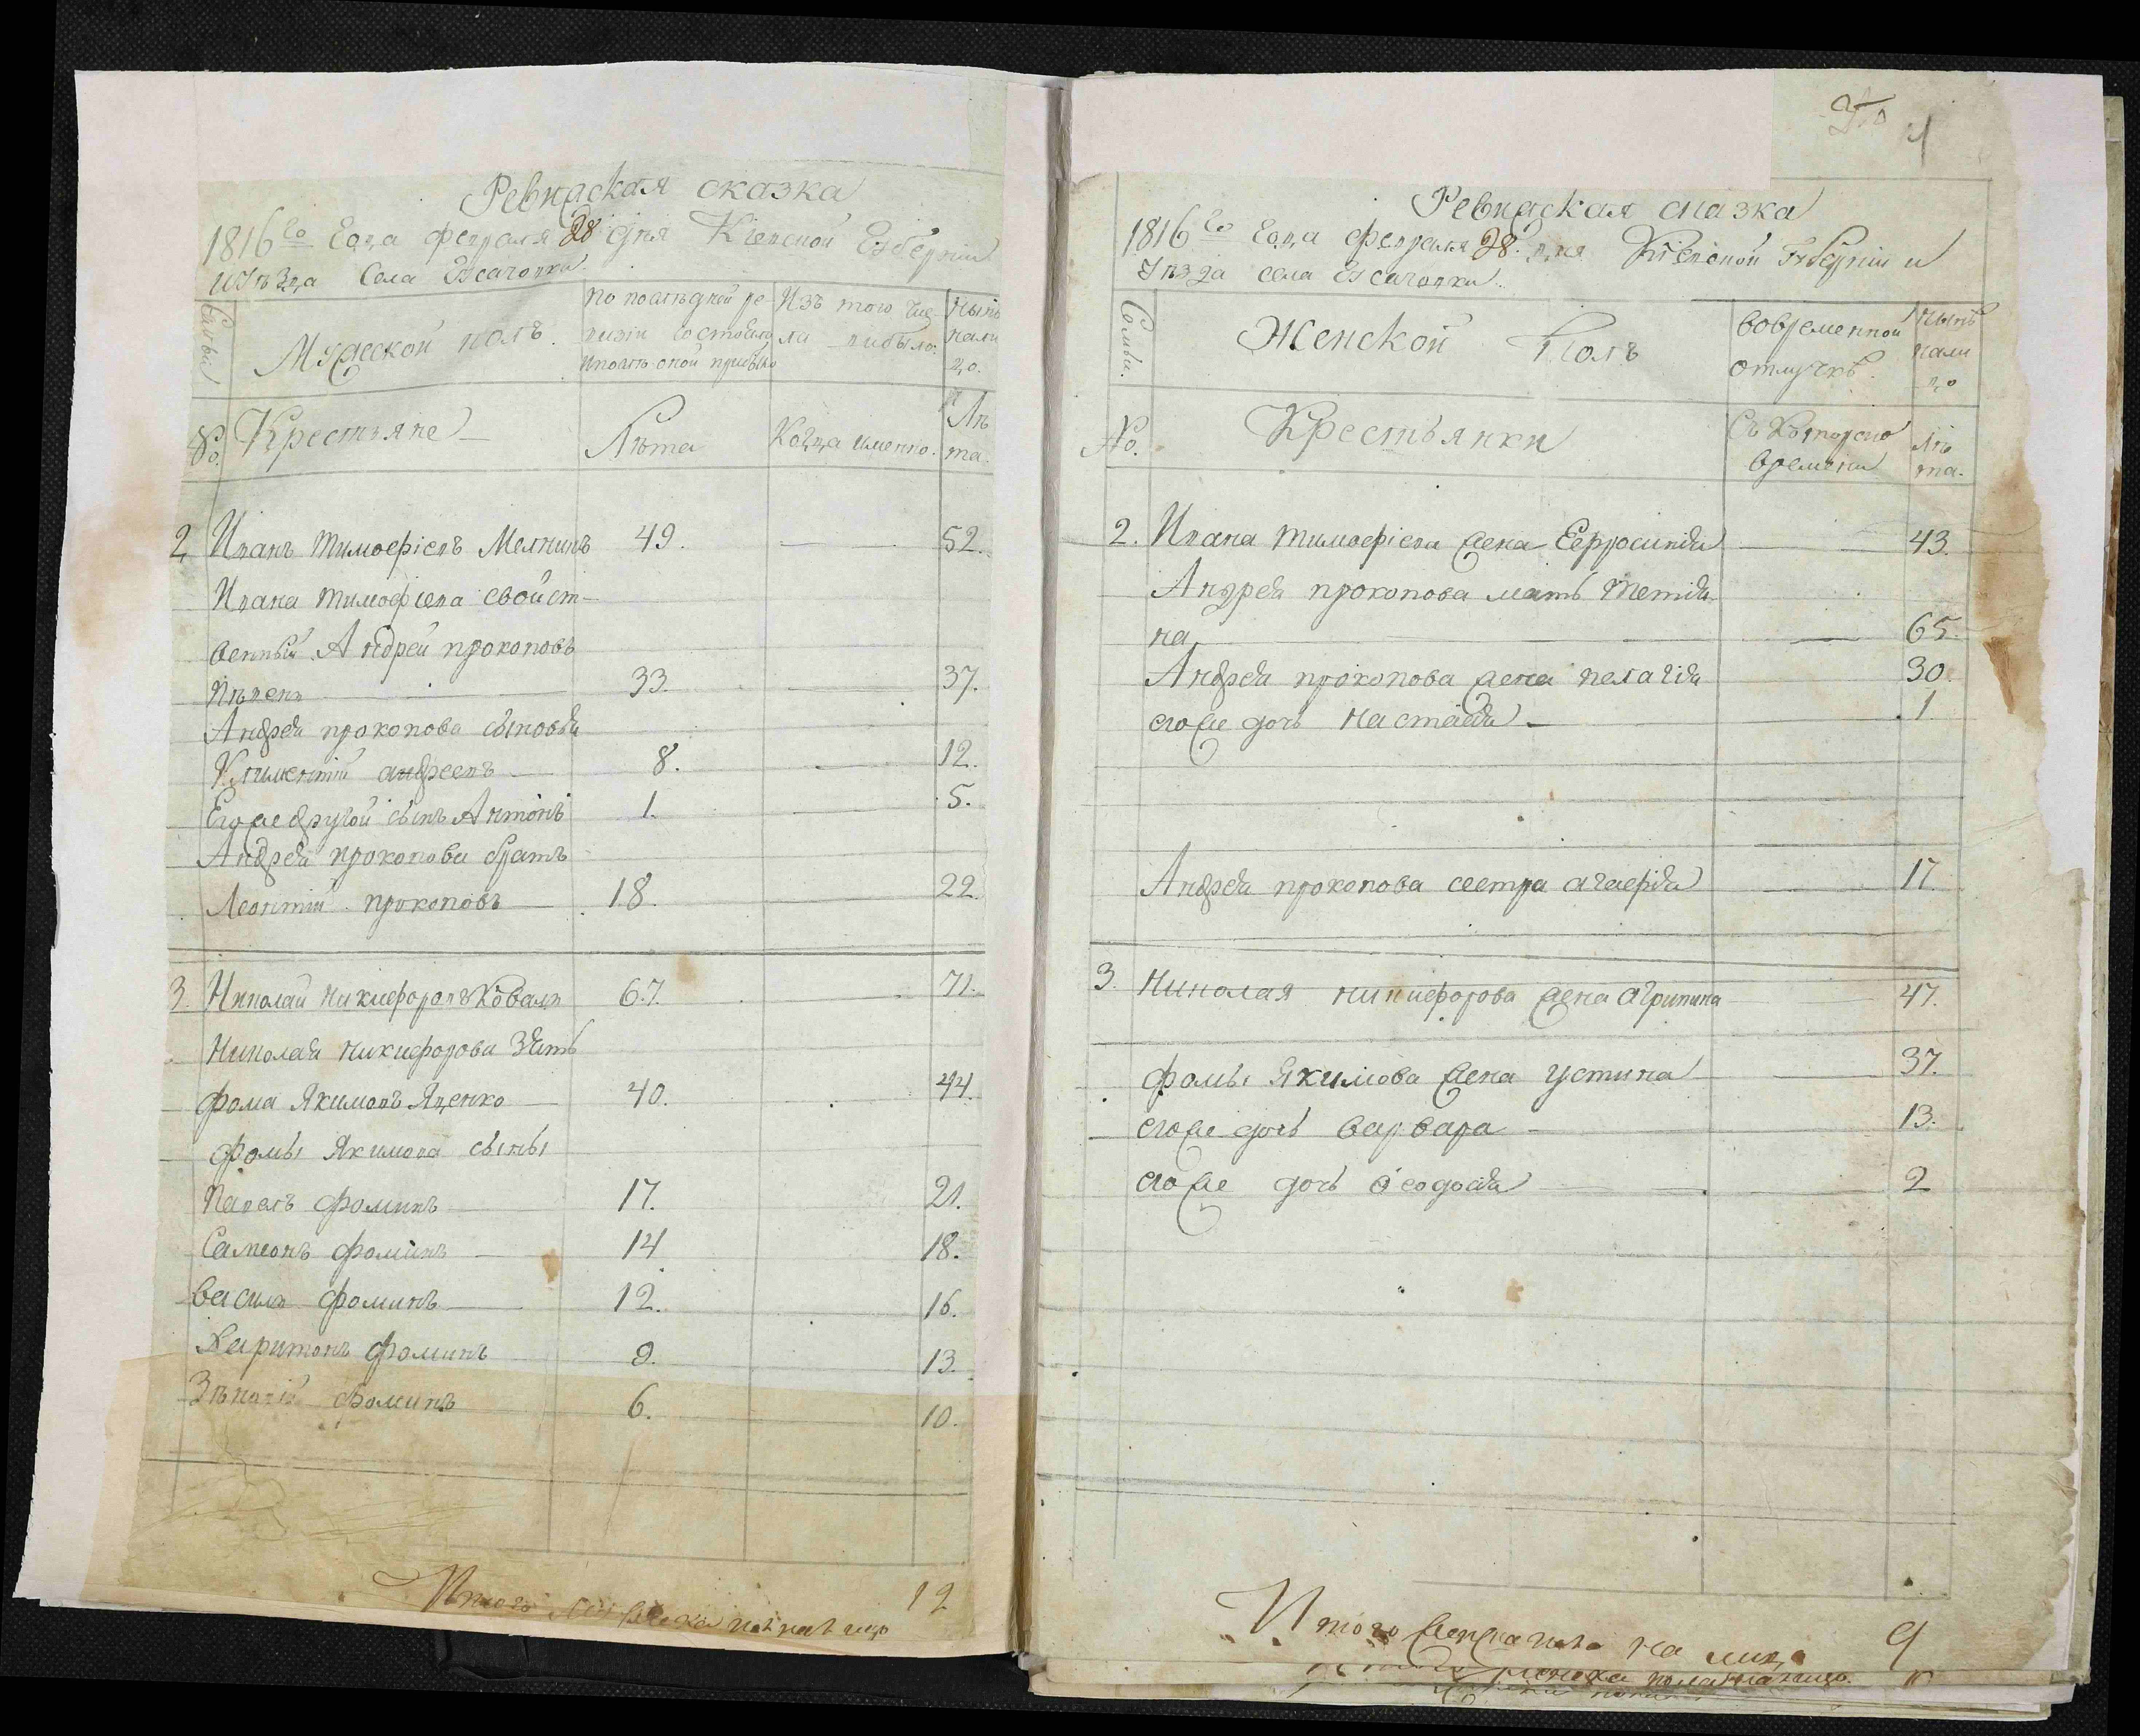 Ревизская сказка
1816го Года февраля 28 дня Кіевской Губерніи
и уѣзда Села Гусачовки
Семьи
Мужеской полъ.
По последней ре-
визіи состояло
и после оной прибыло
Изъ того чис-
ла выбыло.
Нынѣ
нали
цо.
No.
Крестьяне
Лѣта
Когда именно.
Лѣ
та.
2 Иванъ тимофіевъ Мелникъ 49. 52.
Ивана тимофіева свойст-
венный Андрей прокоповъ
33. 37.
Андрея прокопова сыновья
Климентій андреевъ 8. 12.
Егоже другой сынъ Антонъ 1. 5.
Андрея прокопова братъ
Леонтій прокоповъ 18. 22.
3. Николай никифоровъ Коваль 67. 71.
Николая никифорова Зять
фома Якимовъ Яценко 40. 44.
фомы Якимова сыны
Павелъ фоминъ 17. 21.
Самсонъ фоминъ 14 18.
василь фоминъ 12. 16.
Харитонъ фоминъ 9. 13.
фоминъ 6. 10.
Итого мужеска на лицо 12
4
Ревизская сказка
1816го Года февраля 28. дня Кіевской Губерніи и
Уѣзда села Гусачовки.
Семьи.
Женской Полъ
вовременной
отлучкѣ.
нынѣ
нали
цо
No.
Крестьянки
Съ Которого
времени
Лѣ
та.
2. Ивана тимофіева жена Ефросинія 43.
Андрея прокопова мать тетія
на 65.
Андрея прокопова жена пелагія 30.
егоже дочь настасія 1
Андрея прокопова сестра агафія 17
3. Николая никифорова жена агрипина 47.
фомы Якимова жена устина 37.
егоже дочь варвара 13.
егоже дочь ѳеодосія 2
Итого женска пола на лицо 9
женска пола на лицо.